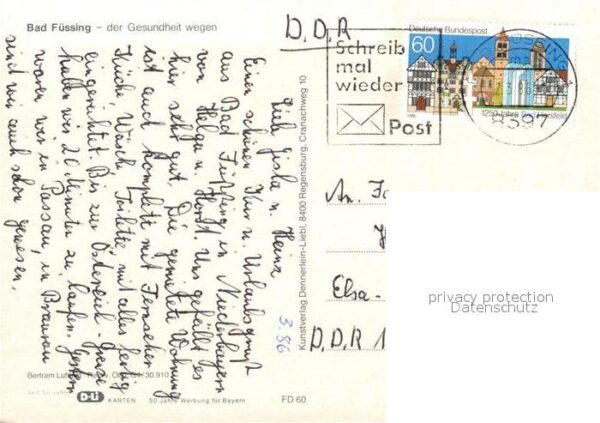 Bad Füssing – der Gesundheit wegen
D.D.R
Schreib
mal
wieder
Post
Deutsche Bundespost
60
1250 Jahre Bad Hersfeld
8397
Lieb Gisla u. Heinz
Einen schönen Kur u. Urlaubsgruß
aus Bad Füssing in Niederbayern
von Helga u. Horst. Uns gefällt es
hier sehr gut. Die gemietete Wohnung
ist auch komplett mit Fernsehen
Küche Wäsche Toilette mit alles fertig
eingerichtet. Bis zur Österreich-Grenze
haben wir 20 Minuten zu laufen. Gestern
waren wir in Passau, in Braunau
sind wir auch schon gewesen.
3.86
Kunstverlag Dennerlein-Liebl, 8400 Regensburg, Cranachweg 10
An. Fa
H
Elsa-
D.D.R 1
privacy protection
Datenschutz
Bertram Luftbild
30.910
D-Li KARTEN 50 Jahre Werbung für Bayern
FD 60